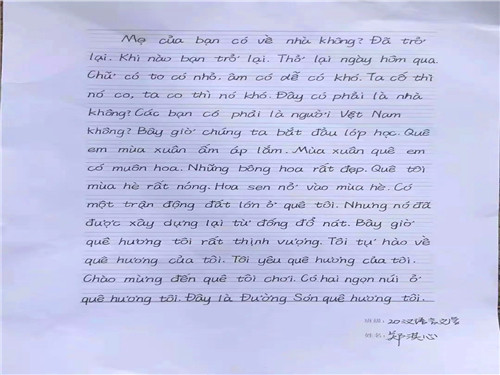 Mẹ của bạn có về nhà không? Đã trở
lại. Khi nào bạn trở lại. Thở lại ngày hôm qua
Chữ có to có nhỏ. âm có dễ có khó. Ta cố thì
nó co, ta co thì nó khó. Đây có phải là nhà
không? Các bạn có phải là người Việt Nam
không? Bây giờ chúng ta bắt đầu lớp học. Quê
em mùa xuân ấm áp lắm. Mùa xuân quê em
có muôn hoa. Những bông hoa rất đẹp. Quê tôi
mùa hè rất nóng. Hoa sen nở vào mùa hè. Có
một trận động đất lớn ở quê tôi. Nhưng nó đã
được xây dựng lại từ đống đổ nát. Bây giờ
quê hương tôi rất thịnh vượng. Tôi tự hào về
quê hương của tôi. Tôi yêu quê hương của tôi.
Chào mừng đến quê tôi chơi. Có hai ngọn núi ở
quê hương tôi. Đây là Đường Sơn quê hương tôi.
班级: 20汉语言文学
姓名: 郑淇心